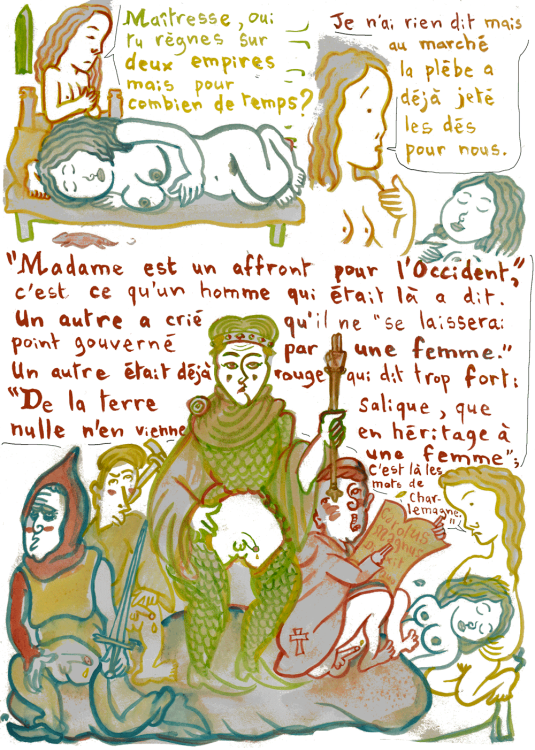 Maîtresse, oui
tu règnes sur
deux empires
mais pour
combien de temps?
Je n'ai rien dit mais
au marché
la plèbe a
déjà jeté
les dés
pour nous.
"Madame est un affront pour l'Occident,"
c'est ce qu'un homme qui était là a dit.
Un autre a crié qu'il ne "se laissera:
point gouverné par une femme."
Un autre était déjà rouge qui dit trop fort:
"De la terre Salique, que
nulle n'en vienne en héritage à
une femme";
c'est là les
mots de
Char-
lemagne."
Carolus
magnus